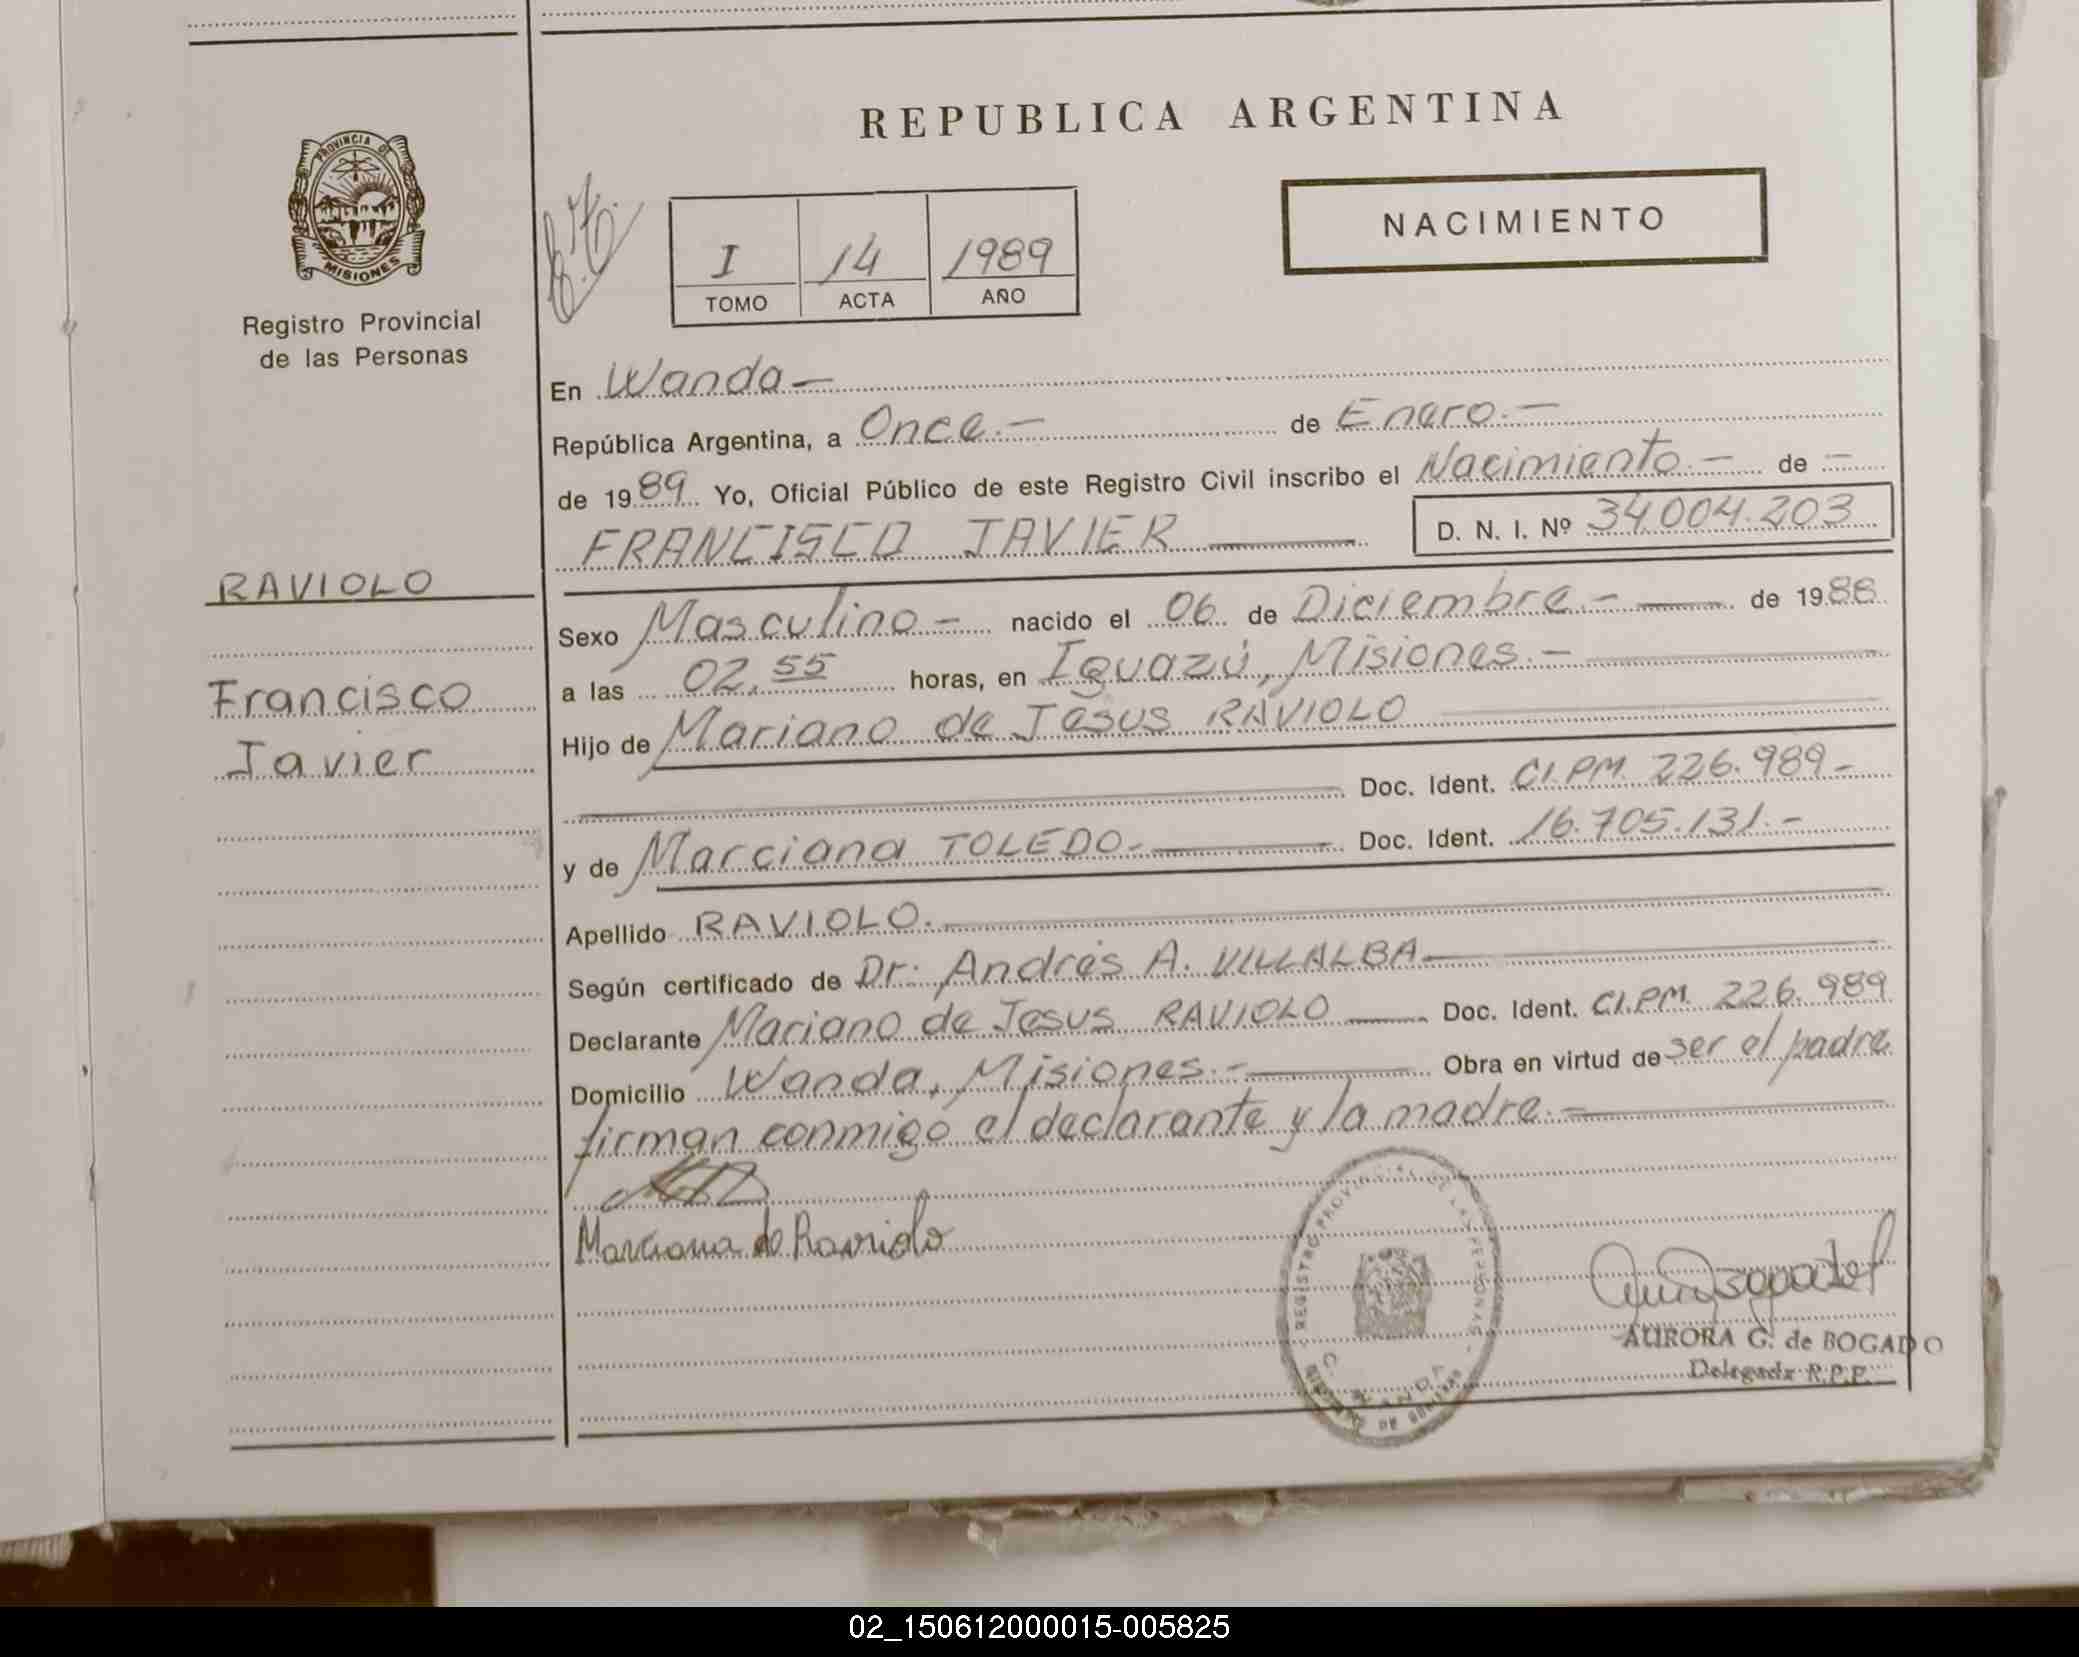 REPUBLICA ARGENTINA
PROVINCIA DE
MISIONES
Registro Provincial
de las Personas
I 14 1989
TOMO ACTA AÑO
NACIMIENTO
En Wanda—
República Argentina, a Once.— de Enero.—
de 1989 Yo, Oficial Público de este Registro Civil inscribo el Nacimiento.— de —
FRANCISCO JAVIER D. N. I. Nº 34.004.203
RAVIOLO
Francisco
Javier
Sexo Masculino— nacido el 06 de Diciembre.— de 1988
a las 02,55 horas, en Iguazú, Misiones.—
Hijo de Mariano de Jesus RAVIOLO
Doc. Ident. CI.PM. 226.989—
y de Marciana TOLEDO.— Doc. Ident. 16.705.131.—
Apellido RAVIOLO.
Según certificado de Dr. Andrés A. VILLALBA—
Declarante Mariano de Jesus RAVIOLO Doc. Ident. CI.PM. 226.989
Domicilio Wanda, Misiones.— Obra en virtud de ser el padre
firman conmigo el declarante y la madre.—
Marciana de Raviolo
REGISTRO PROVINCIAL DE LAS PERSONAS
WANDA
AURORA G. de BOGADO
Delegada R.P.P.
02_150612000015-005825